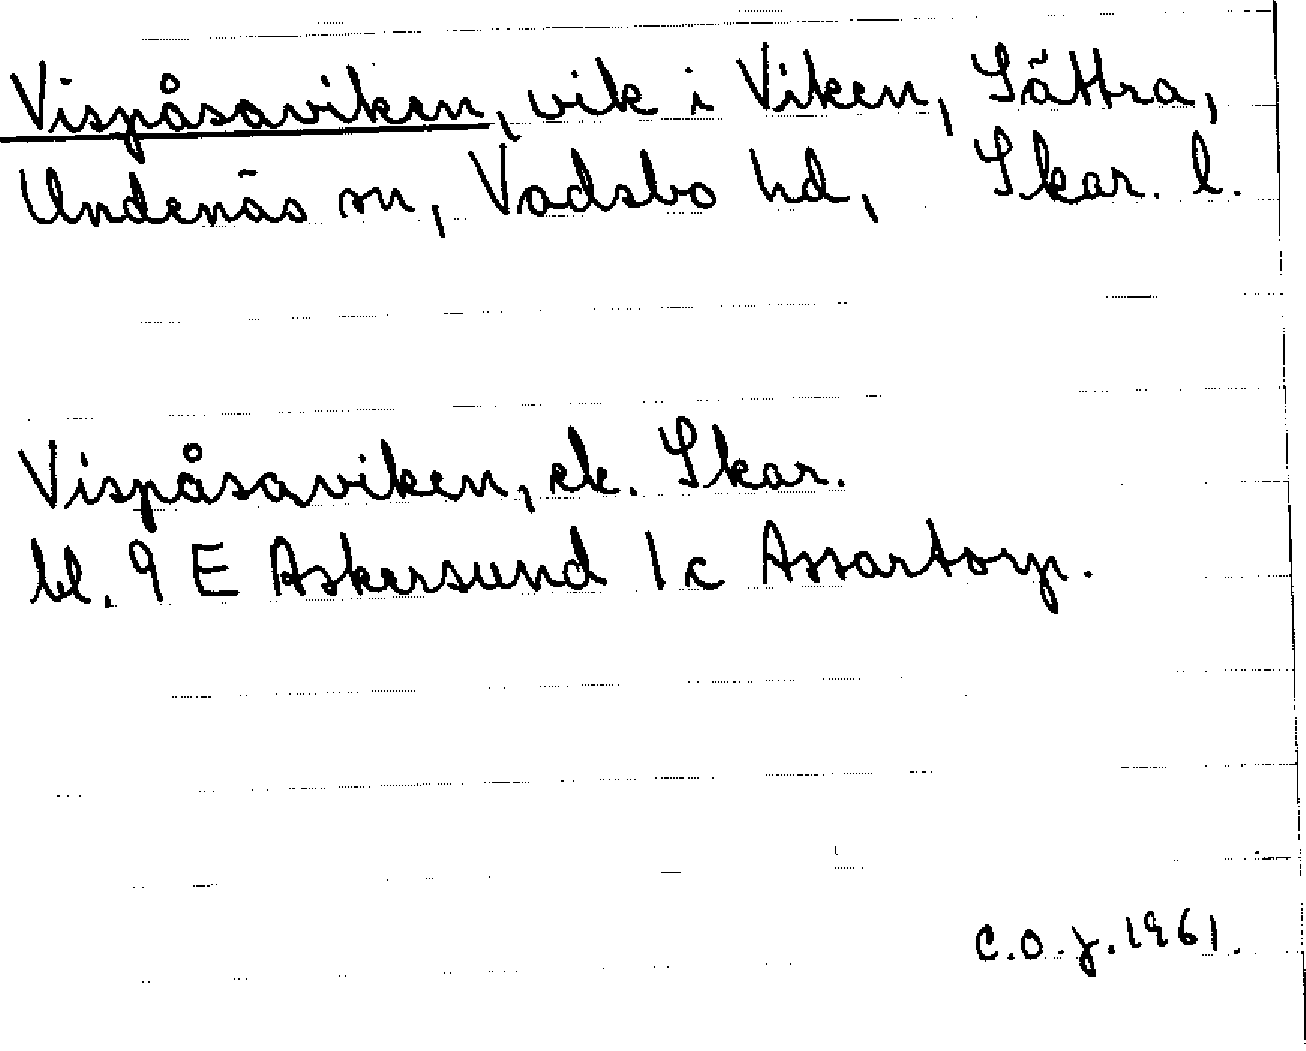 Vispåsaviken, vik i Viken, Sättra,
Undenäs sn, Vadsbo hd, Skar. l.
Vispåsaviken, ek. Skar.
bl. 9 E Askersund 1c Assartorp.
C.O.J. 1961.